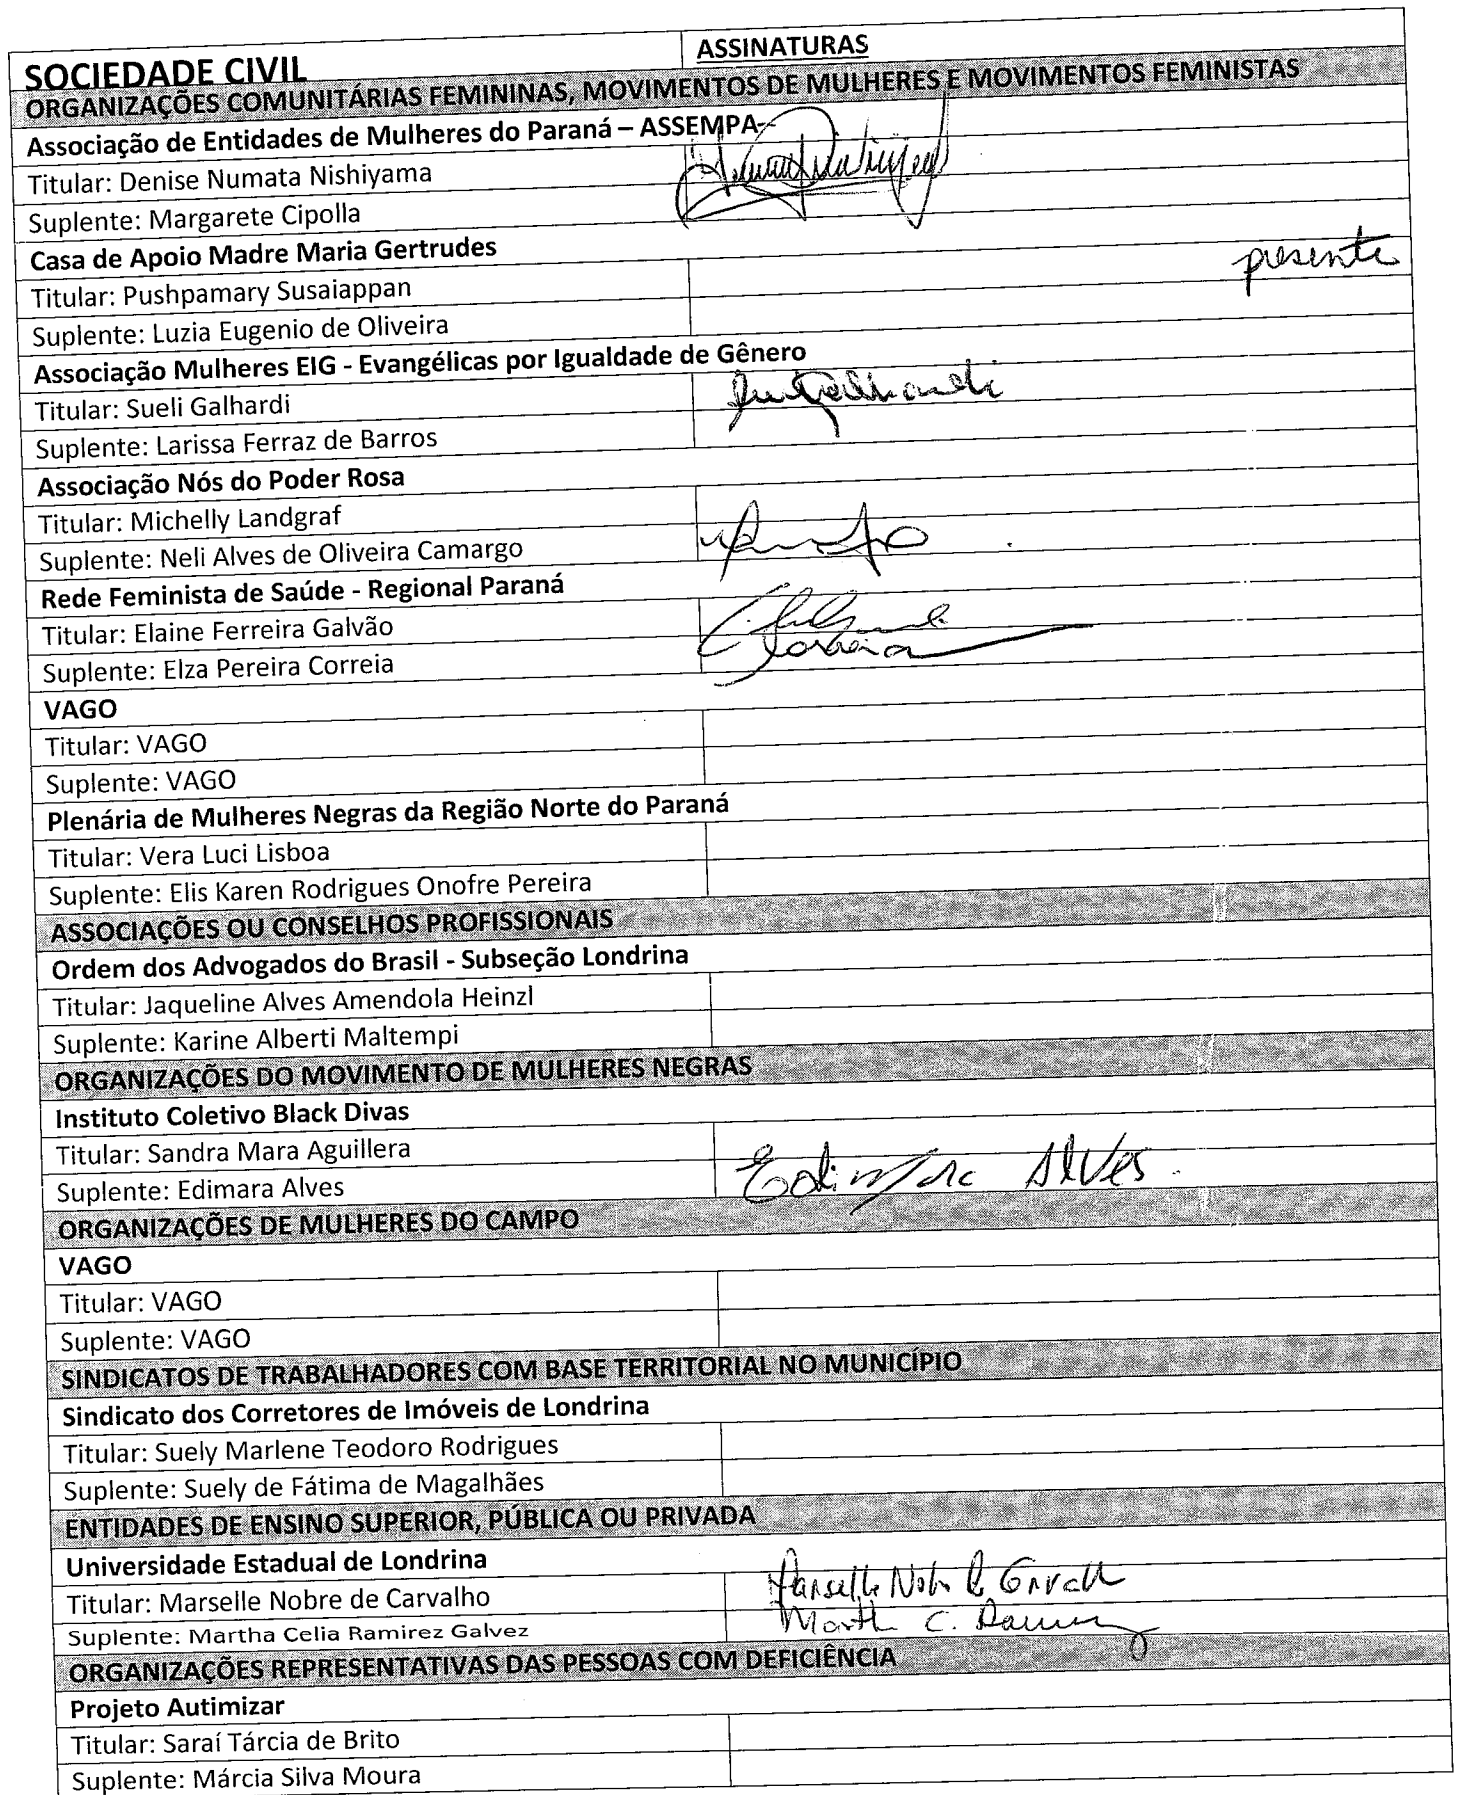 SOCIEDADE CIVIL ASSINATURAS
ORGANIZAÇÕES COMUNITÁRIAS FEMININAS, MOVIMENTOS DE MULHERES E MOVIMENTOS FEMINISTAS
Associação de Entidades de Mulheres do Paraná – ASSEMPA-
Titular: Denise Numata Nishiyama
Suplente: Margarete Cipolla
Casa de Apoio Madre Maria Gertrudes
presente
Titular: Pushpamary Susaiappan
Suplente: Luzia Eugenio de Oliveira
Associação Mulheres EIG - Evangélicas por Igualdade de Gênero
Titular: Sueli Galhardi
Suplente: Larissa Ferraz de Barros
Associação Nós do Poder Rosa
Titular: Michelly Landgraf
Suplente: Neli Alves de Oliveira Camargo
Rede Feminista de Saúde - Regional Paraná
Titular: Elaine Ferreira Galvão
Suplente: Elza Pereira Correia
VAGO
Titular: VAGO
Suplente: VAGO
Plenária de Mulheres Negras da Região Norte do Paraná
Titular: Vera Luci Lisboa
Suplente: Elis Karen Rodrigues Onofre Pereira
ASSOCIAÇÕES OU CONSELHOS PROFISSIONAIS
Ordem dos Advogados do Brasil - Subseção Londrina
Titular: Jaqueline Alves Amendola Heinzl
Suplente: Karine Alberti Maltempi
ORGANIZAÇÕES DO MOVIMENTO DE MULHERES NEGRAS
Instituto Coletivo Black Divas
Titular: Sandra Mara Aguillera
Suplente: Edimara Alves Edimara Alves
ORGANIZAÇÕES DE MULHERES DO CAMPO
VAGO
Titular: VAGO
Suplente: VAGO
SINDICATOS DE TRABALHADORES COM BASE TERRITORIAL NO MUNICÍPIO
Sindicato dos Corretores de Imóveis de Londrina
Titular: Suely Marlene Teodoro Rodrigues
Suplente: Suely de Fátima de Magalhães
ENTIDADES DE ENSINO SUPERIOR, PÚBLICA OU PRIVADA
Universidade Estadual de Londrina
Titular: Marselle Nobre de Carvalho Marselle
Suplente: Martha Celia Ramirez Galvez C.
ORGANIZAÇÕES REPRESENTATIVAS DAS PESSOAS COM DEFICIÊNCIA
Projeto Autimizar
Titular: Saraí Tárcia de Brito
Suplente: Márcia Silva Moura